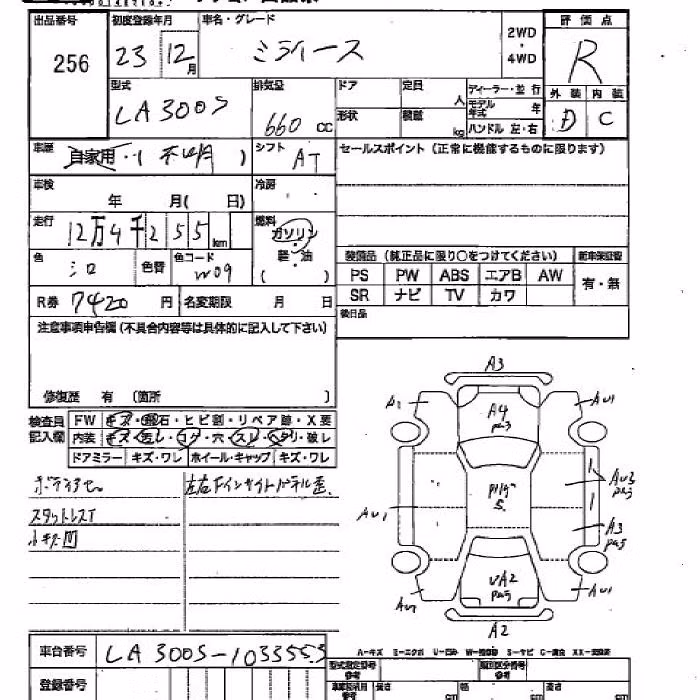 出品番号 初度登録年月 車名・グレード 評価点
256 23 12月 ミライース 2WD・4WD R
型式 排気量 ドア 定員 人 ディーラー・並行 外装 内装
LA300S 660cc 形状 積載 kg モデル年式 年 D C
ハンドル 左・右
車歴 自家用・( 不明 ) シフト AT セールスポイント (正常に機能するものに限ります)
車検 年 月( 日) 冷房
走行 12万4千255km 燃料 ガソリン
軽・油
( )
色 シロ 色替 色コード W09 装備品 (純正品に限り○をつけてください) 新車保証書
PS PW ABS エアB AW 有・無
SR ナビ TV カワ
R券 7420円 名変期限 月 日 後日品
注意事項申告欄(不具合内容等は具体的に記入して下さい)
修復歴 有 (箇所 )
検査員記入欄 FW キズ・飛石・ヒビ割・リペア跡・X要
内装 キズ・汚レ・コゲ・穴・スレ・ヘタリ・破レ
ドアミラー キズ・ワレ ホイール・キャップ キズ・ワレ
スタットレスT
小キズ凹
A3
A1 A4 AU1
AU3
AU1 A3
UA2
AU1
A2
A-キズ
車台番号 LA300S-1033553
登録番号
型式指定番号 参考 類別区分番号 参考
長さ cm 幅 cm 高さ cm